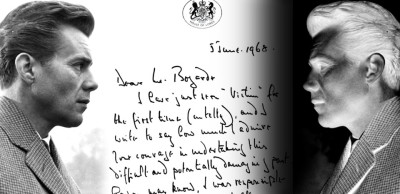 5 June. 1968.
Dear Mr. Bogarde
I have just seen "Victim" for
the first time (on telly), and I
write to say how much I admire
your courage in undertaking this
difficult and potentially damaging part
you may know, I was